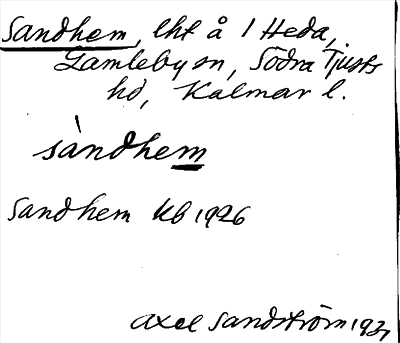 Sandhem, lht å 1 Heda,
Gamleby sn, Södra Tjusts
hd, Kalmar l.
sàndhem
Sandhem kb 1926
Axel Sandström